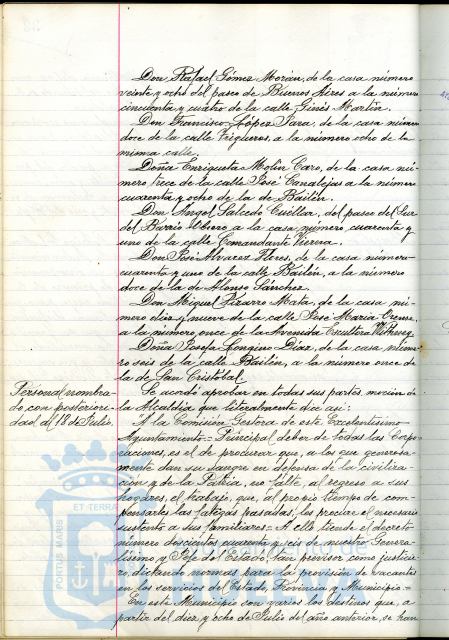 Don Rafael Gómez Morán, de la casa número
veinte y ocho del paseo de Buenos Aires a la número
cincuenta y cuatro de la calle Ginés Martín.
Don Francisco López Jara, de la casa número
doce de la calle Trigueros, a la número ocho de la
misma calle.
Doña Enriqueta Molin Caro, de la casa nú-
mero trece de la calle José Canalejas a la número
cuarenta y ocho de la de Bailén.
Don Angel Salcedo Cuellar, del paseo del Sur
del Barrio Obrero a la casa número cuarenta y
uno de la calle Comandante
Don José Alvarez Flores, de la casa número
cuarenta y uno de la calle Bailén, a la número
doce de la de Alonso Sánchez.
Don Miguel Pizarro Mata, de la casa nú-
mero diez y nueve de la calle José Maria
a la número once de la Avenida Escultora
Doña Josefa Díaz, de la casa núme-
ro seis de la calle Bailén, a la número once de
la de San Cristóbal.
Personal nombra-
do con posteriori-
dad al 18 de Julio.
Se acordó aprobar en todas sus partes moción de
la Alcaldía que literalmente dice así:
A la Comisión Gestora de este Excelentísimo
Ayuntamiento = Principal deber de todas las Corpo-
raciones, es el de procurar que, a los que generosa-
mente dan su sangre en defensa de la civiliza-
ción y de la Patria, no falte, al regreso a sus
hogares, el trabajo, que, al propio tiempo de com-
pensarles las fatigas pasadas, les procure el necesario
sustento a sus familiares = A ello tiende el decreto
número doscientos cuarenta y seis de nuestro Genera-
lísimo y Jefe del Estado, tan previsor como justicie-
ro, dictando normas para la provisión de vacantes
en los servicios del Estado, Provincia y Municipio =
En este Municipio son varios los destinos que, a
partir del diez y ocho de Julio del año anterior, se han
PORTUS MARIS ET TERRAE